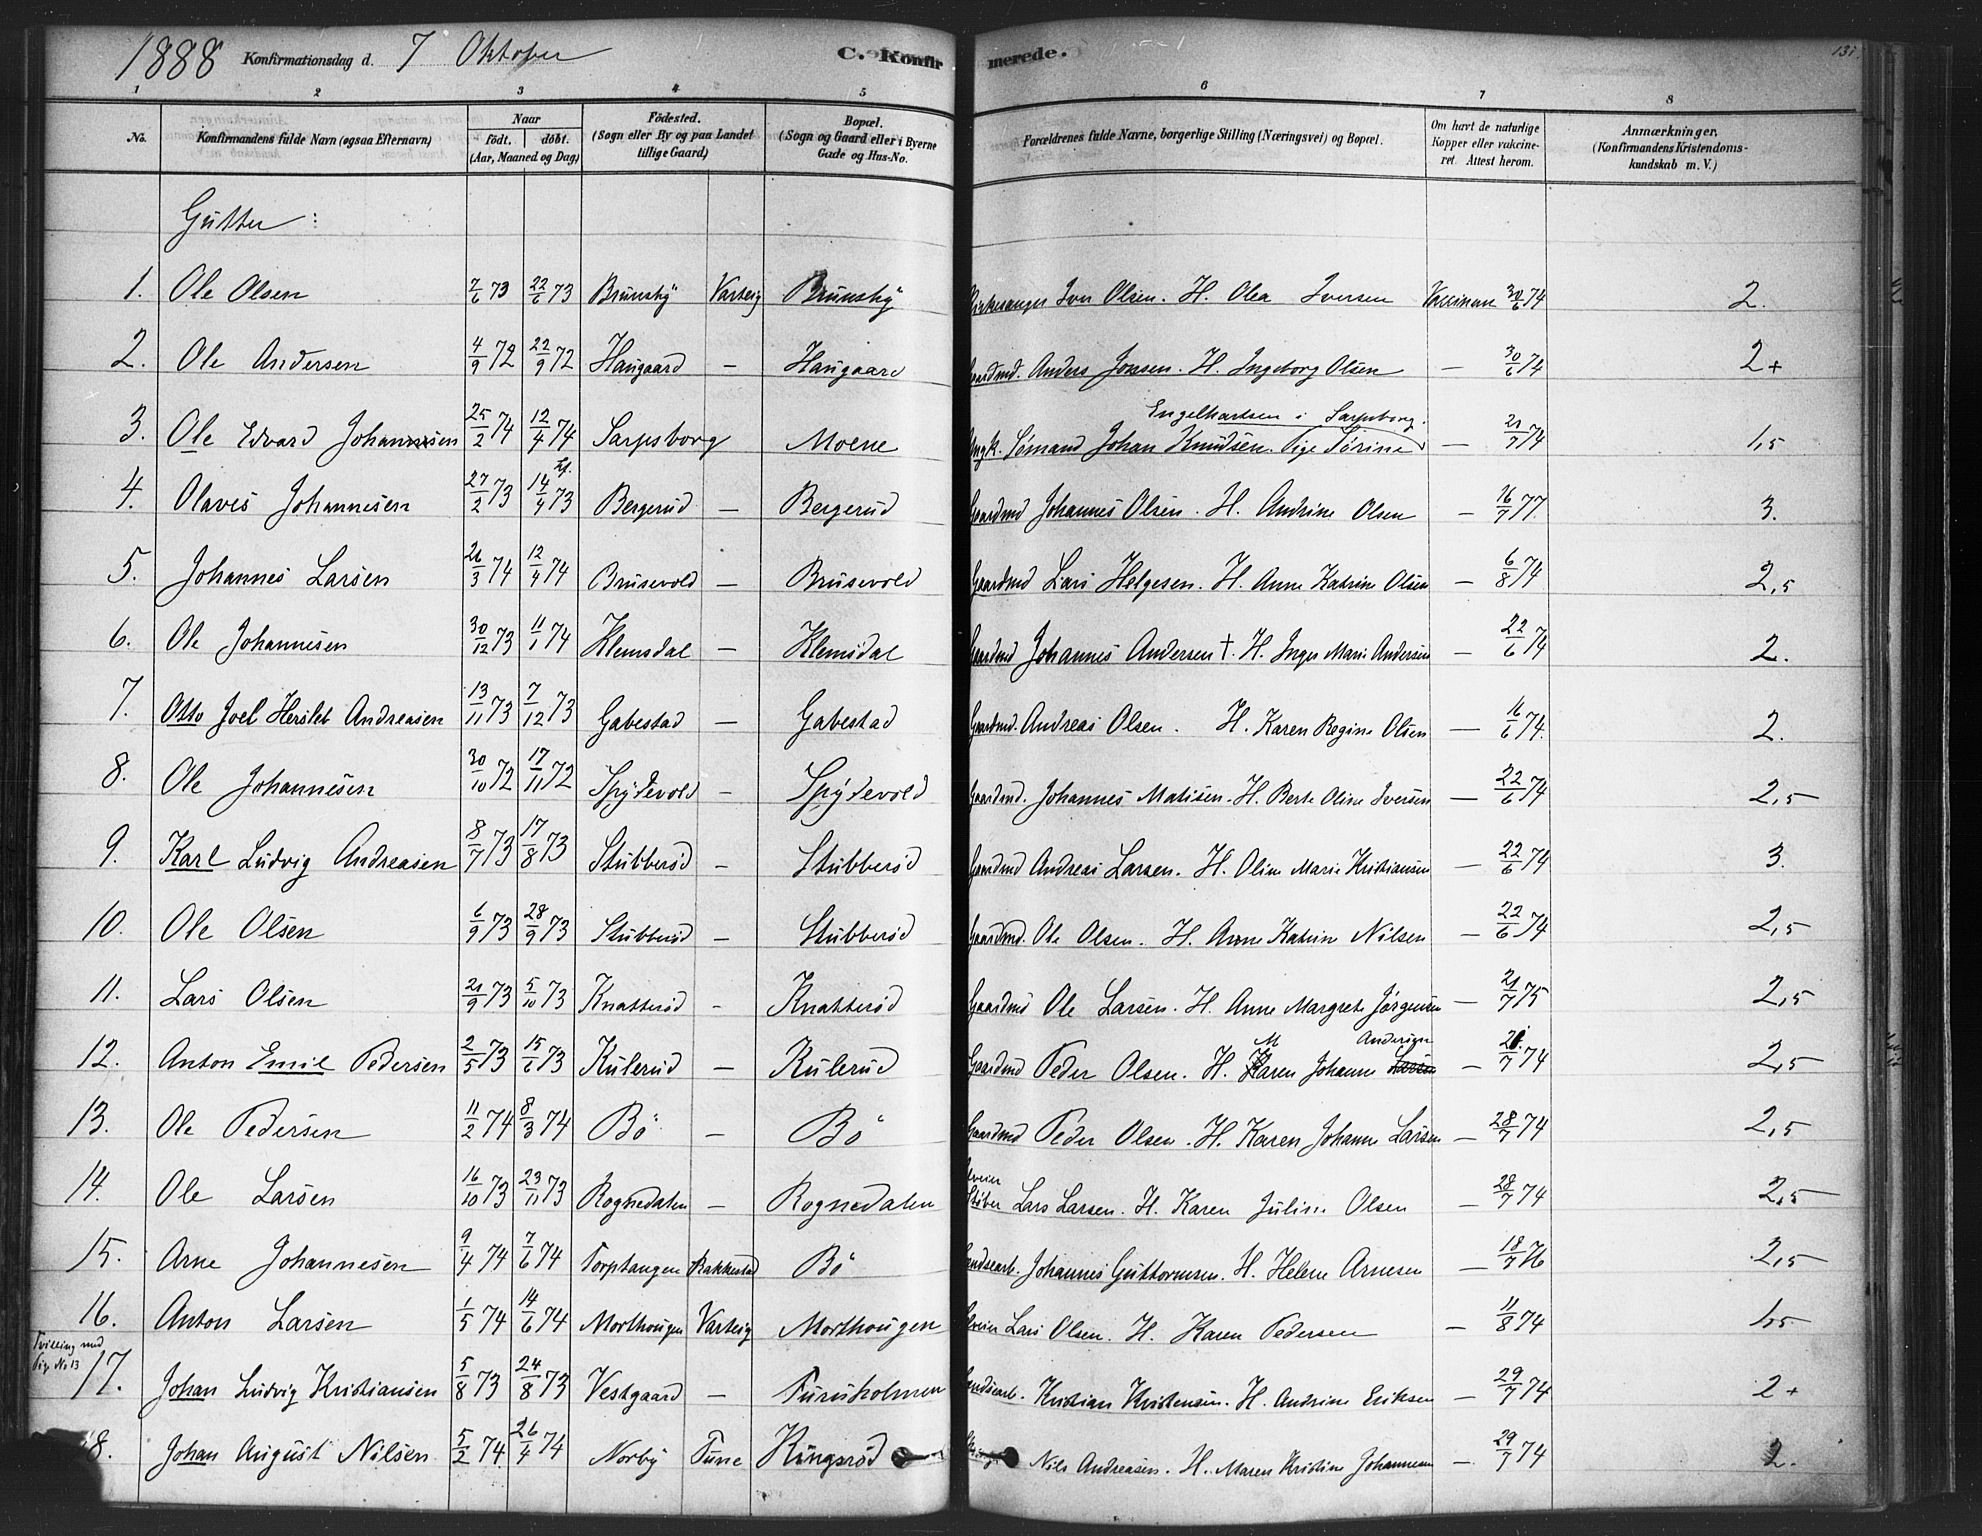 1888 Konfirmationsdag d. 7 Oktober C. Konfirmerede. 131.
1 2 3 4 5 6 7 8
No. Konfirmandens fulde Navn (ogsaa Efternavn) Naar født. døbt. (Aar, Maaned og Dag) Fødested. (Sogn eller By og paa Landet tillige Gaard) Bopæl. (Sogn og Gaard eller i Byerne Gade og Hus-No. Forældrenes fulde Navne, borgerlige Stilling (Næringsvei) og Bopæl. Om havt de naturlige Kopper eller vakcineret. Attest herom. Anmærkninger. (Konfirmandens Kristendomskundskab m. V.)
Gutter:
1. Ole Olsen 7/6 73 22/6 73 Brunsby Varteig Brunsby Kirkesanger Iver Olsen. H. Olea Iversen Vaccineret 30/6 74 2.
2. Ole Andersen 4/9 72 22/9 72 Haugaard — Haugaard Gaardmd. Anders Jonsen. H. Ingeborg Olsen — 30/6 74 2+
Engelhartsen i Sarpsborg.
3. Ole Edvard Johannesen 25/2 74 12/4 74 Sarpsborg Moene Ungk. Sømand Johan Knudsen. Pige Sørine — 21/7 74 1,5
4. Olaves Johannesen 27/2 73 14/4 73 Bergerud — Bergerud Gaardmd Johannes Olsen. H. Andrine Olsen — 16/7 77. 3.
5. Johannes Larsen 26/3 74 12/4 74 Brusevold — Brusevold Gaardmd Lars Helgesen. H. Anne Katrine Olsen — 6/8 74 2,5
6. Ole Johannesen 30/12 73 11/1 74 Klemsdal — Klemsdal Gaardmd Johannes Andersen †. H. Inger Marie Andersen — 22/6 74 2.
7. Otto Joel Herslet Andreasen 13/11 73 7/12 73 Gabestad — Gabestad Gaardmd. Andreas Olsen. H. Karen Regine Olsen — 16/6 74. 2.
8. Ole Johannesen 30/10 72 17/11 72 Spydevold — Spydevold Gaardmd. Johannes Matisen. H. Berte Oline Iversen — 22/6 74 2,5
9. Karl Ludvig Andreasen 8/7 73 17/8 73 Stubberød — Stubberød Gaardmd Andreas Larsen. H. Oline Marie Kristiansen — 22/6 74 3.
10. Ole Olsen 6/9 73 28/9 73 Stubberød — Stubberød Gaardmd. Ole Olsen. H. Anne Katrine Nilsen — 22/6 74 2,5
11. Lars Olsen 21/9 73 5/10 73 Knatterød — Knatterød Gaardmd Ole Larsen. H. Anne Margrete Jørgensen — 21/7 75 2,5
M Andersen
12. Anton Emil Pedersen 2/5 73 15/6 73 Kulerud — Kulerud Gaardmd Peder Olsen. H. Karen Johanne Larsen — 21/7 74 2,5
13. Ole Pedersen 11/2 74 8/3 74 Bö — Bö Gaardmd Peder Olsen. H. Karen Johanne Larsen — 28/7 74 2,5
14. Ole Larsen 16/10 73 23/11 73 Rognedalen — Rognedalen Lars Larsen. H. Karen Juline Olsen — 28/7 74 2,5
15. Arne Johannesen 9/4 74 7/6 74 Torptangen Rakkestad Bö Landsearb. Johannes Guttormsen. H. Helene Arnesen — 18/7 76 2,5
16. Anton Larsen 1/5 74 14/6 74 Morthougen Varteig Morthougen Lars Olsen. H. Karen Pedersen — 11/8 74 1,5
Tvilling med
Pige No 13
17. Johan Ludvig Kristiansen 5/8 73 24/8 73 Vestgaard — Furuholmen Landsearb. Kristian Kristensen. H. Andrine Eriksen — 29/7 74 2+
18. Johan August Nilsen 5/2 74. 26/4 74 Norby Tune Kingsrød Nils Andreasen. H. Maren Kristine Johannesen — 29/7 74 2.